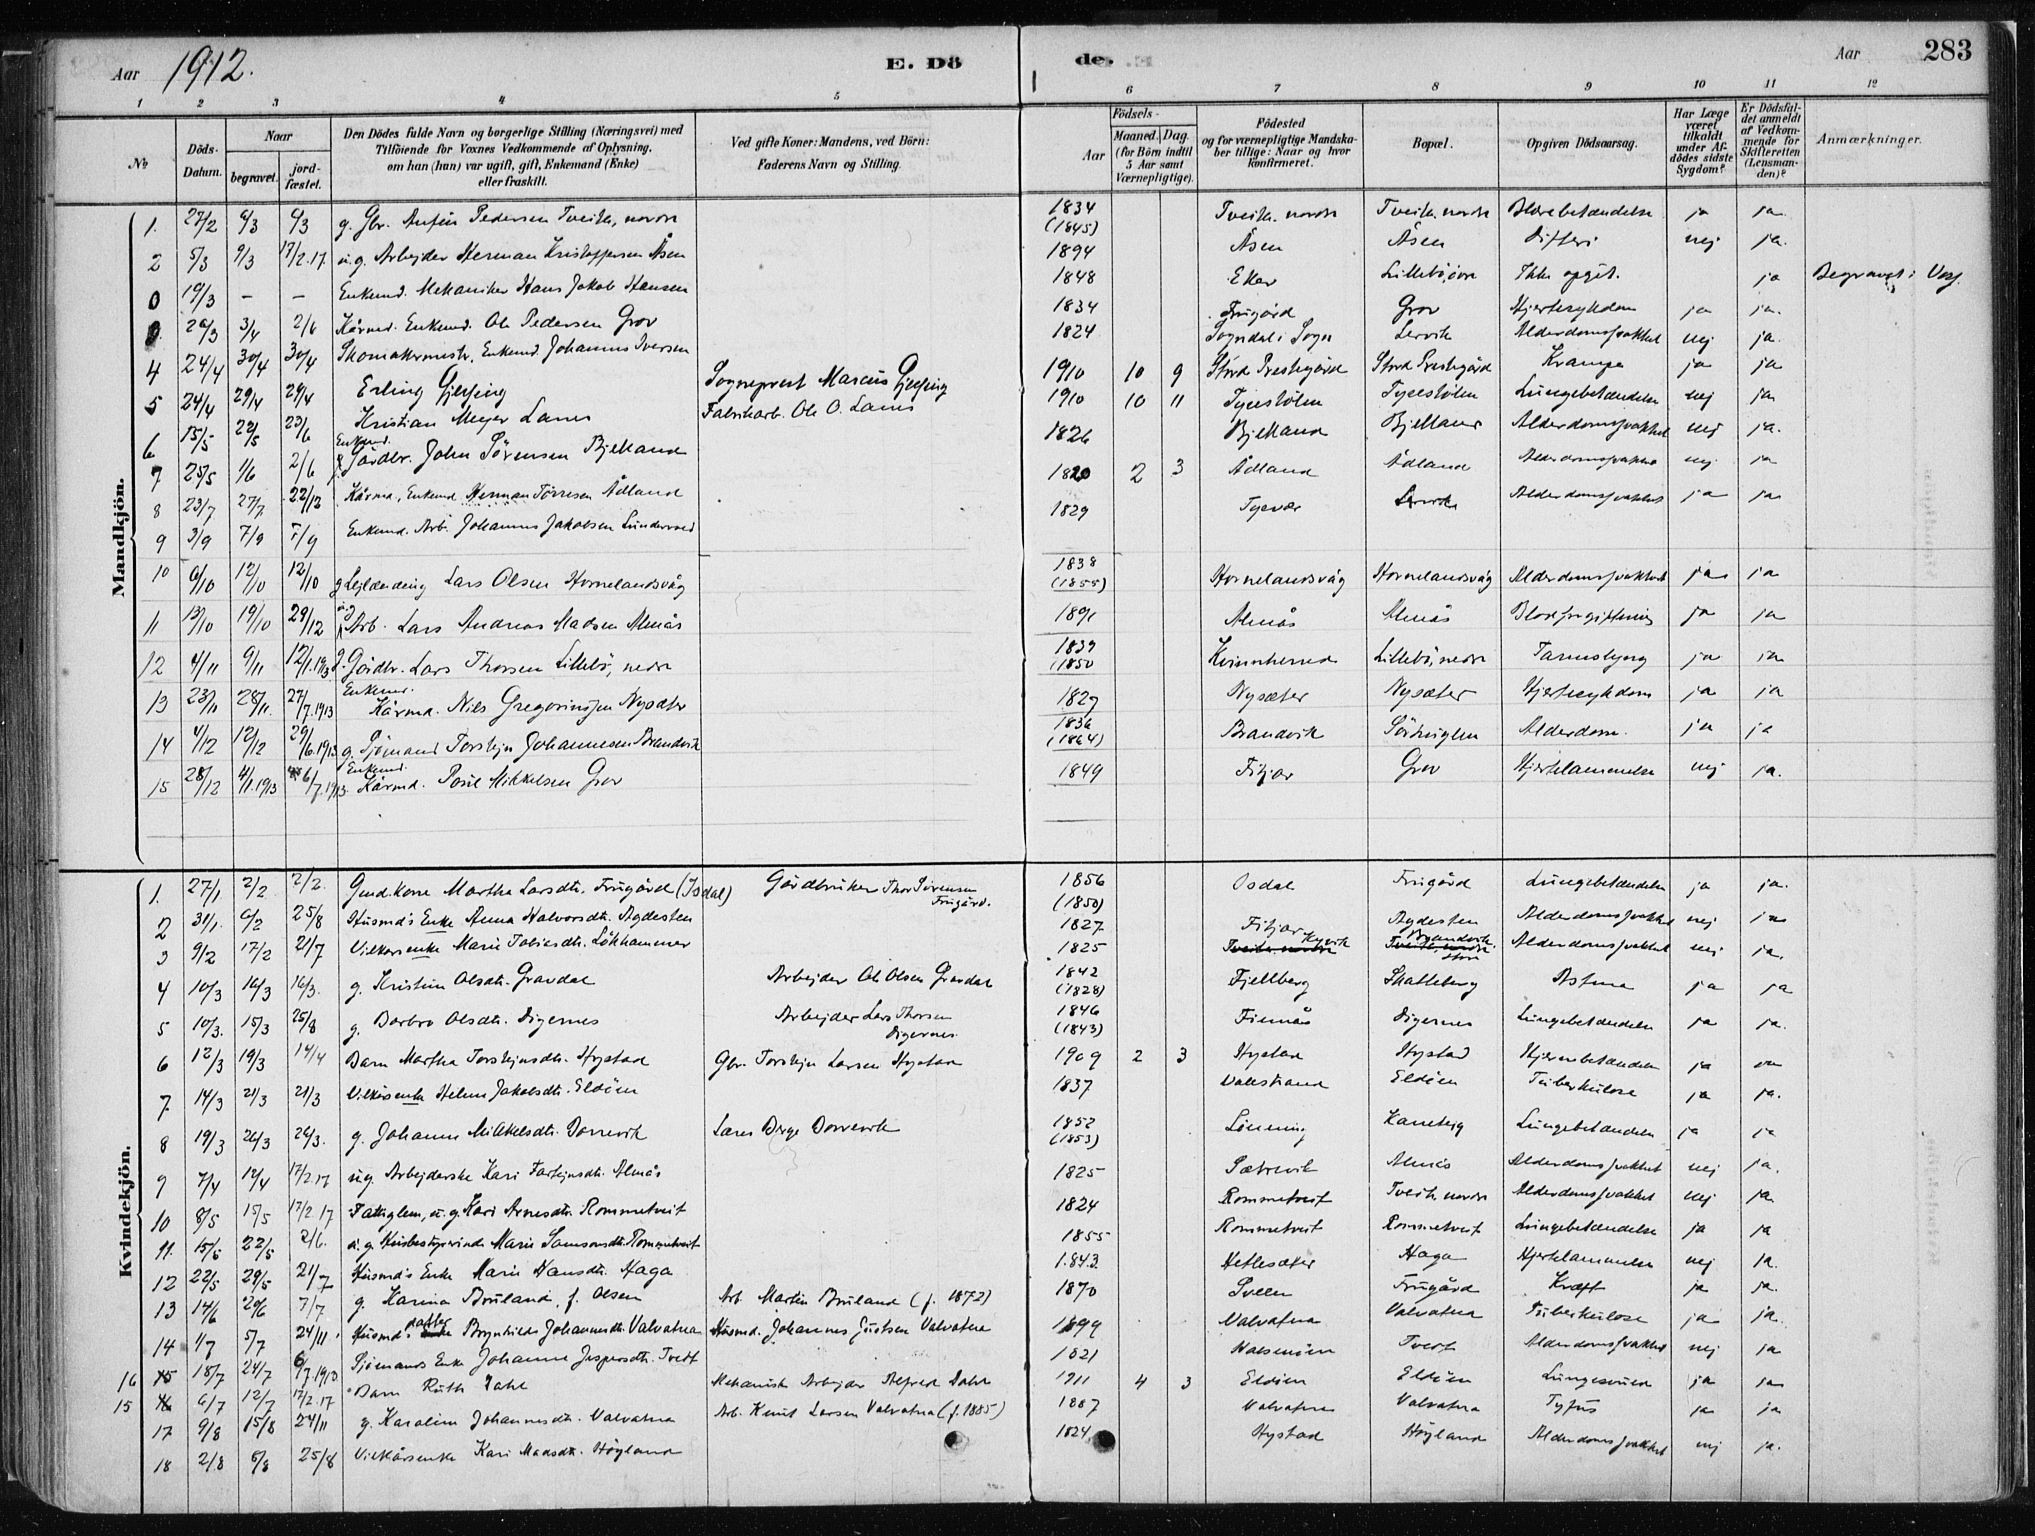 Aar 1912. E. Dö de. Aar 283
1 2 3 4 5 6 7 8 9 10 11 12
No
Döds-Datum.
Naar
begravet.
jord-fæstet.
Den Dödes fulde Navn og borgerlige Stilling (Næringsvei) med
Tilföiende for Voxnes Vedkommende af Oplysning,
om han (hun) var ugift, gift, Enkemand (Enke)
eller fraskilt.
Ved gifte Koner: Mandens, ved Börn:
Faderens Navn og Stilling.
Aar
Födsels-
Maaned. Dag.
(for Börn indtil
5 Aar samt
Værnepligtige).
Födested
og for værnepligtige Mandska-
ber tillige: Naar og hvor
konfirmeret.
Bopæl.
Opgiven Dödsaarsag.
Har Læge
været
tilkaldt
under Af-
dödes sidste
Sygdom?
Er Dödsfal-
det anmeldt
af Vedkom-
mende for
Skifteretten
(Lensman-
den)?
Anmærkninger.
Mandkjön.
1. 27/2 6/3 6/3 g. Gbr. Anfin Pedersen Tveita, nordre 1834 (1845) Tveita, nordre Tveita, nordre Blærebetændelse ja ja.
2 5/3 9/3 17/2.17 u.g. Arbejder Herman Kristoffersen Åsen 1894 Åsen Åsen Difteri nej ja.
0 19/3 – – Enkemd. Mekaniker Hans Jakob Hansen 1848 Eker Lillebö, övre Ikke opgit. ja Begravet i Voss.
26/3 3/4 2/6 Kårmd. Enkemd. Ole Pedersen Grov 1834 Frugård Grov Hjertesykdom ja ja.
4 24/4 30/4 30/4 Skomakermestr. Enkemd. Johannes Iversen 1824 Sogndal i Sogn Lervik Alderdomssvakhet nej ja.
5 24/4 29/4 29/4 Erling Gjessing Sogneprest Marcus Gjessing 1910 10 9 Stord Prestegård Stord Prestegård Krampe ja ja
6 15/5 22/5 23/6 Kristian Meyer Lanes Fabrikarb. Ole O. Lanes 1910 10 11 Tysestölen Tysestölen Lungebetændelse nej ja
7 25/5 1/6 2/6 Enkemd. Gårdbr. John Sörensen Bjelland 1826 Bjelland Bjelland Alderdomssvakhet nej ja.
8 23/7 27/7 22/12 Kårmd., Enkemd Herman Törresen Ådland 1820 2 3 Ådland Ådland Alderdomssvakhet nej ja
9 3/9 7/9 7/9 Enkemd. Arb. Johannes Jakobsen 1829 Tysvær Lervik Alderdomssvakhet ja ja
10 6/10 12/10 12/10 g Lejlænding Lars Olsen Hornelandsvåg 1838 (1855) Hornelandsvåg Hornelandsvåg Alderdomssvakhet ja ja
11 13/10 19/10 29/12 ug Arb. Lars Andreas Madsen Almås 1891 Almås Almås Blodforgiftning ja ja
12 4/11 9/11 12/1.1913 g. Gårdbr. Lars Thorsen Lillebö, nedre 1839 (1850 Kvinnherred Lillebö, nedre Tarmslyng ja ja
13 23/11 28/11. 27/7.1913 Enkemd. Kårmd. Nils Gregoriussen Nysæter 1827 Nysæter Nysæter Hjertesykdom ja ja
14 4/12 12/12 29/6.1913 g. Sjömand Torstejn Johannessen Brandvik 1836 (1864) Brandvik Sörhuglen Alderdom. ja ja
15 28/12 4/1.1913 6/7.1913. Enkemd. Kårmd. Poul Mikkelsen Grov 1849 Fitjar Grov Hjertelammelse nej ja.
Kvindekjön.
1. 27/1 2/2 2/2. Gmd. kone Martha Larsdtr. Frugård (Isdal) Gårdbruker Thor Sörensen Frugård. 1856 (1850) Osdal Frugård Lungebetændelse ja ja.
2 31/1. 6/2 25/8 Husmd's Enke Anna Halvorsdtr. Agdesten 1827 Fitjar Agdesten Alderdomssvakhet nej ja
3 9/2 17/2 21/7 Vilkårsenke Marie Tobiasdtr. Lökhammer 1825 Brandvik Alderdomssvakhet nej ja.
4 10/3 16/3 16/3. g. Kristine Olsdtr. Gravdal Arbejder Ole Olsen Gravdal 1842 (1828) Fjellberg Skatleberg Astma ja ja
5 10/3. 15/3 25/8 g. Barbro Olsdtr. Digernes Arbejder Lars Thorsen Digernes. 1846 (1843) Finnås Digernes Lungebetændelse ja ja.
6 12/3 19/3 14/4 Barn Martha Torstejnsdtr. Hystad Gbr. Torstejn Larsen Hystad 1909 2 3 Hystad Hystad Hjernebetændelse ja
7. 14/3 21/3 21/3 Vilkårsenke Helene Jakobsdtr. Eldöen 1837 Valestrand Eldöen Tuberkulose ja ja.
8 19/3 26/3 26/3. g. Johanne Mikkelsdtr. Dorrevik Lars Berge Dorrevik 1852 (1853) Lönning Lungebetændelse ja ja
9 7/4 12/4 17/2.17 ug. Arbejderske Kari Torstejnsdtr. Almås 1825 Sætrevik Almås Alderdomssvakhet nej ja.
10 8/5 15/5 17/2.17 Fattiglem, u.g. Kari Arnesdtr. Rommetveit 1824 Rommetveit Tveita nordre Alderdomssvakhet nej ja
11. 15/5 22/5 2/6. u.g. Husbestyrerinde Marie Samsonsdtr. Rommetveit 1855 Rommetveit Rommetveit Lungebetændelse ja ja
12 22/5 29/5 21/7 Husmd's Enke Marie Hansdtr. Haga 1843. Hetlesæter Haga Hjertelammelse nej ja.
13 14/6 20/6 7/7 g. Karina Bruland, f. Olsen Arb. Martin Bruland (f. 1872) 1870 Sveen Frugård Kræft ja ja.
14 1/7 5/7 24/11 Husmd's datter Brynhilde Johannesdtr. Valvatna Husmd. Johannes Justsen Valvatna 1899 Valvatna Valvatna Tuberkulose ja ja.
16 15 18/7 24/7 6/7.1913 Sjömands Enke Johanne Jespersdtr. Tvedt 1821 Halsnöen Tvedt Alderdomssvakhet nej ja
15 16 6/7 12/7 17/2.17 Barn Ruth Dahl Mekanisk Arbejder Alfred Dahl 1911 4 3 Eldöen Eldöen Lungesvind ja ja
17 9/8 15/8 24/11 g. Karoline Johannesdtr. Valvatna Arb. Knut Larsen Valvatna (f. 1885) 1887 Valvatna Valvatna Tyfus ja ja
18 2/8 8/8 25/8 Vilkårsenke Kari Madsdtr. Höyland 1824 Hystad Höyland Alderdomssvakhet nej ja.